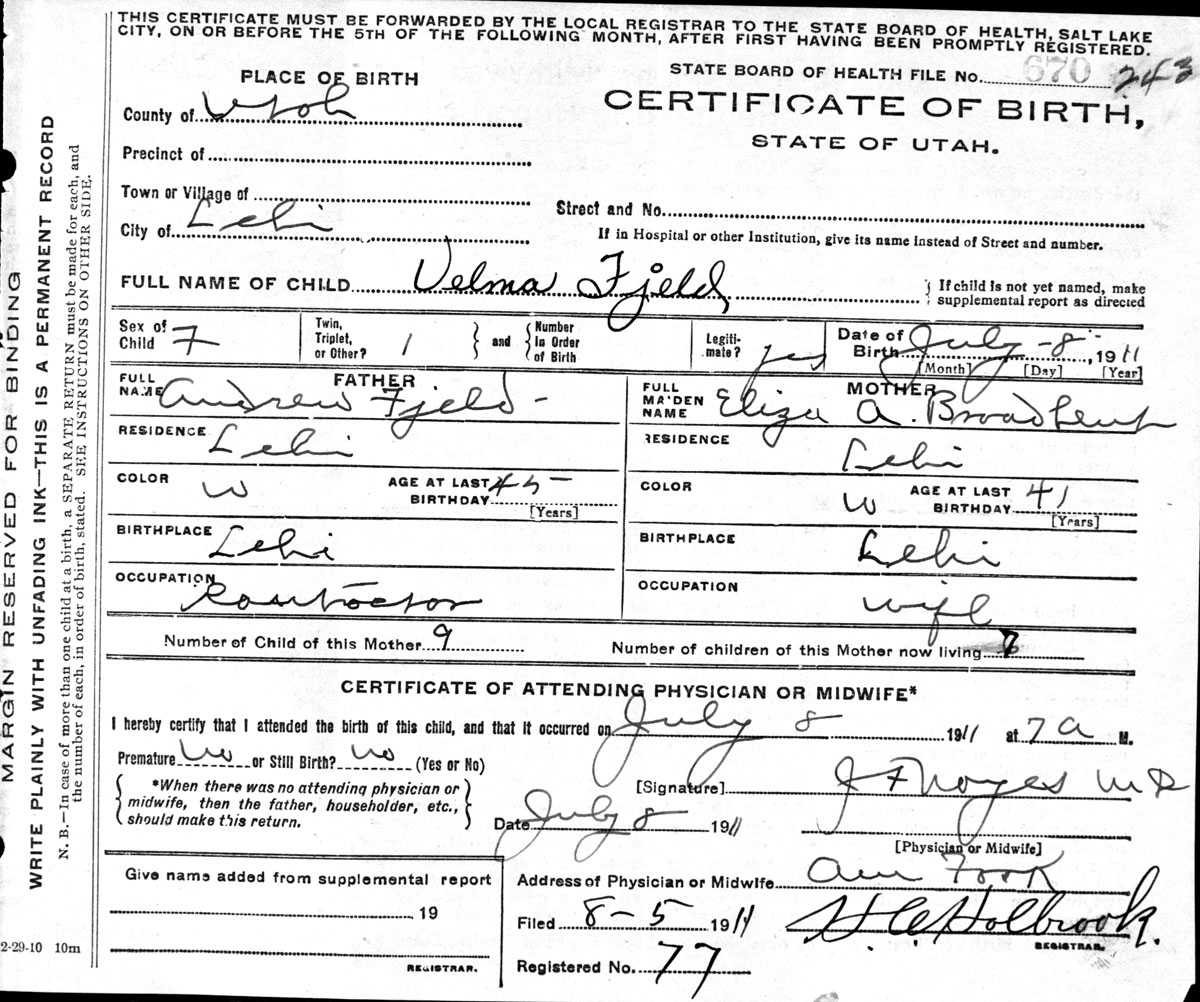 THIS CERTIFICATE MUST BE FORWARDED BY THE LOCAL REGISTRAR TO THE STATE BOARD OF HEALTH, SALT LAKE
CITY, ON OR BEFORE THE 5TH OF THE FOLLOWING MONTH, AFTER FIRST HAVING BEEN PROMPTLY REGISTERED.
PLACE OF BIRTH
STATE BOARD OF HEALTH FILE NO. 670 243
CERTIFICATE OF BIRTH,
STATE OF UTAH.
County of Utah
Precinct of
Town or Village of
City of Lehi
Street and No.
If in Hospital or other Institution, give its name instead of Street and number.
FULL NAME OF CHILD Velma Fjeld
If child is not yet named, make
supplemental report as directed
Sex of
Child F
Twin,
Triplet,
or Other? 1
and
Number
In Order
of Birth
Legiti-
mate? yes
Date of
Birth July 8 , 1911
[Month] [Day] [Year]
FATHER
FULL
NAME Andrew Fjeld
RESIDENCE Lehi
COLOR W AGE AT LAST
BIRTHDAY 45
[Years]
BIRTHPLACE Lehi
OCCUPATION Contractor
MOTHER
FULL
MAIDEN
NAME Eliza A. Broadbent
RESIDENCE Lehi
COLOR W AGE AT LAST
BIRTHDAY 41
[Years]
BIRTHPLACE Lehi
OCCUPATION wife
Number of Child of this Mother 9
Number of children of this Mother now living
CERTIFICATE OF ATTENDING PHYSICIAN OR MIDWIFE*
I hereby certify that I attended the birth of this child, and that it occurred on July 8 1911 at 7 a M.
Premature no or Still Birth? no (Yes or No)
*When there was no attending physician or
midwife, then the father, householder, etc.,
should make this return.
[Signature] J F Noyes M D
Date July 8 1911
[Physician or Midwife]
Give name added from supplemental report
19
REGISTRAR.
Address of Physician or Midwife Am Fork
Filed 8-5 1911
H. C. Holbrook.
REGISTRAR.
Registered No. 77
MARGIN RESERVED FOR BINDING
WRITE PLAINLY WITH UNFADING INK—THIS IS A PERMANENT RECORD
N. B.—In case of more than one child at a birth, a SEPARATE RETURN must be made for each, and
the number of each, in order of birth, stated. SEE INSTRUCTIONS ON OTHER SIDE.
2-29-10 10m